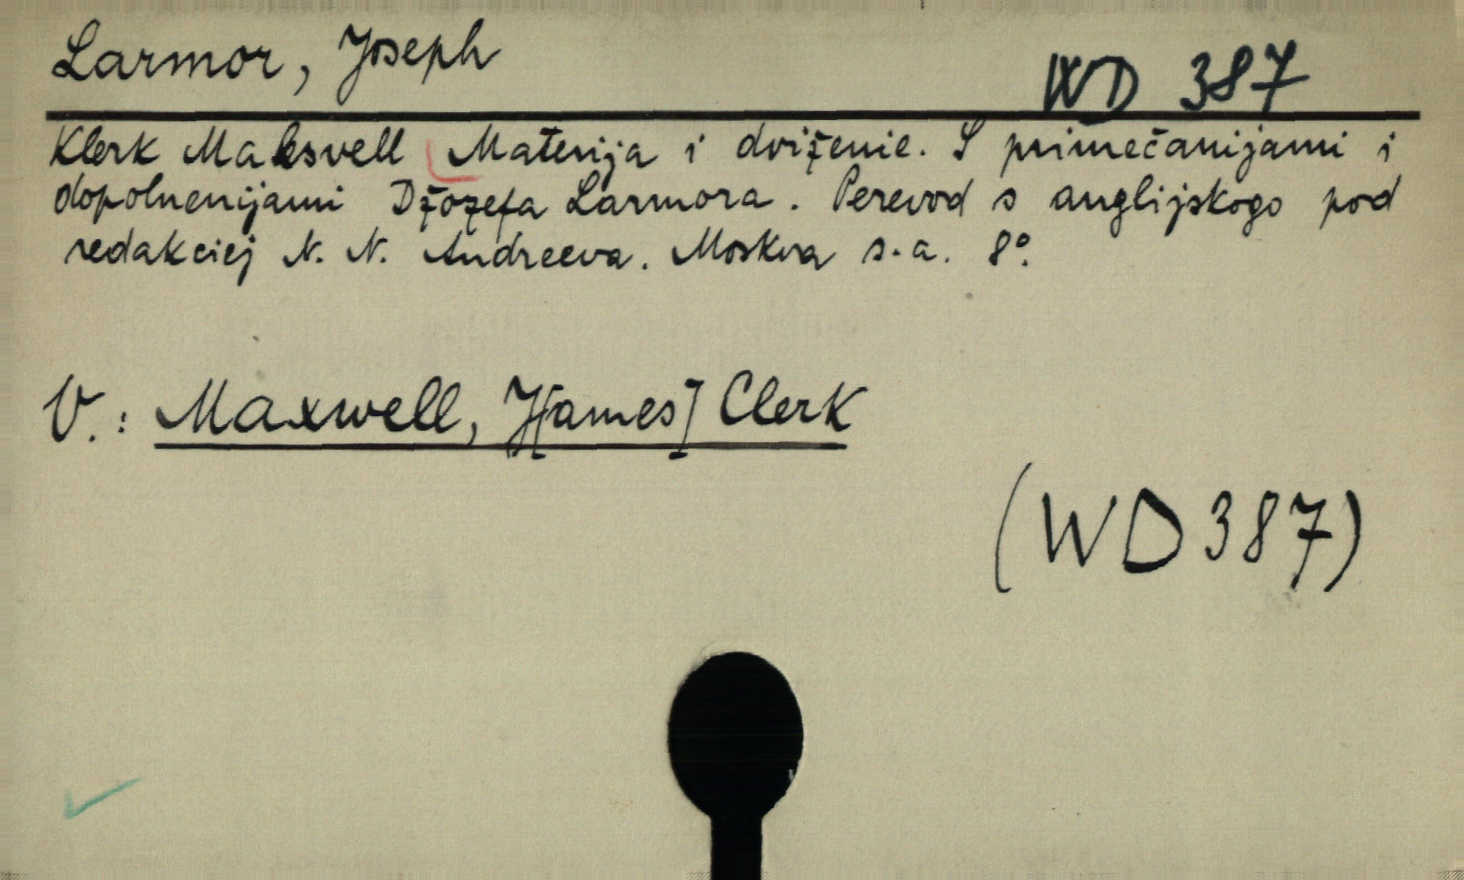 Larmor, Joseph
WD 387
Klerk Maksvell Materija i dviženie. S primečanijami i
dopolnenijami Džozefa Larmora. Perevod s anglijskogo pod
redakciej N. N. Andreeva. Moskva s.a. 8°.
V.: Maxwell, J[ames] Clerk
(WD 387)